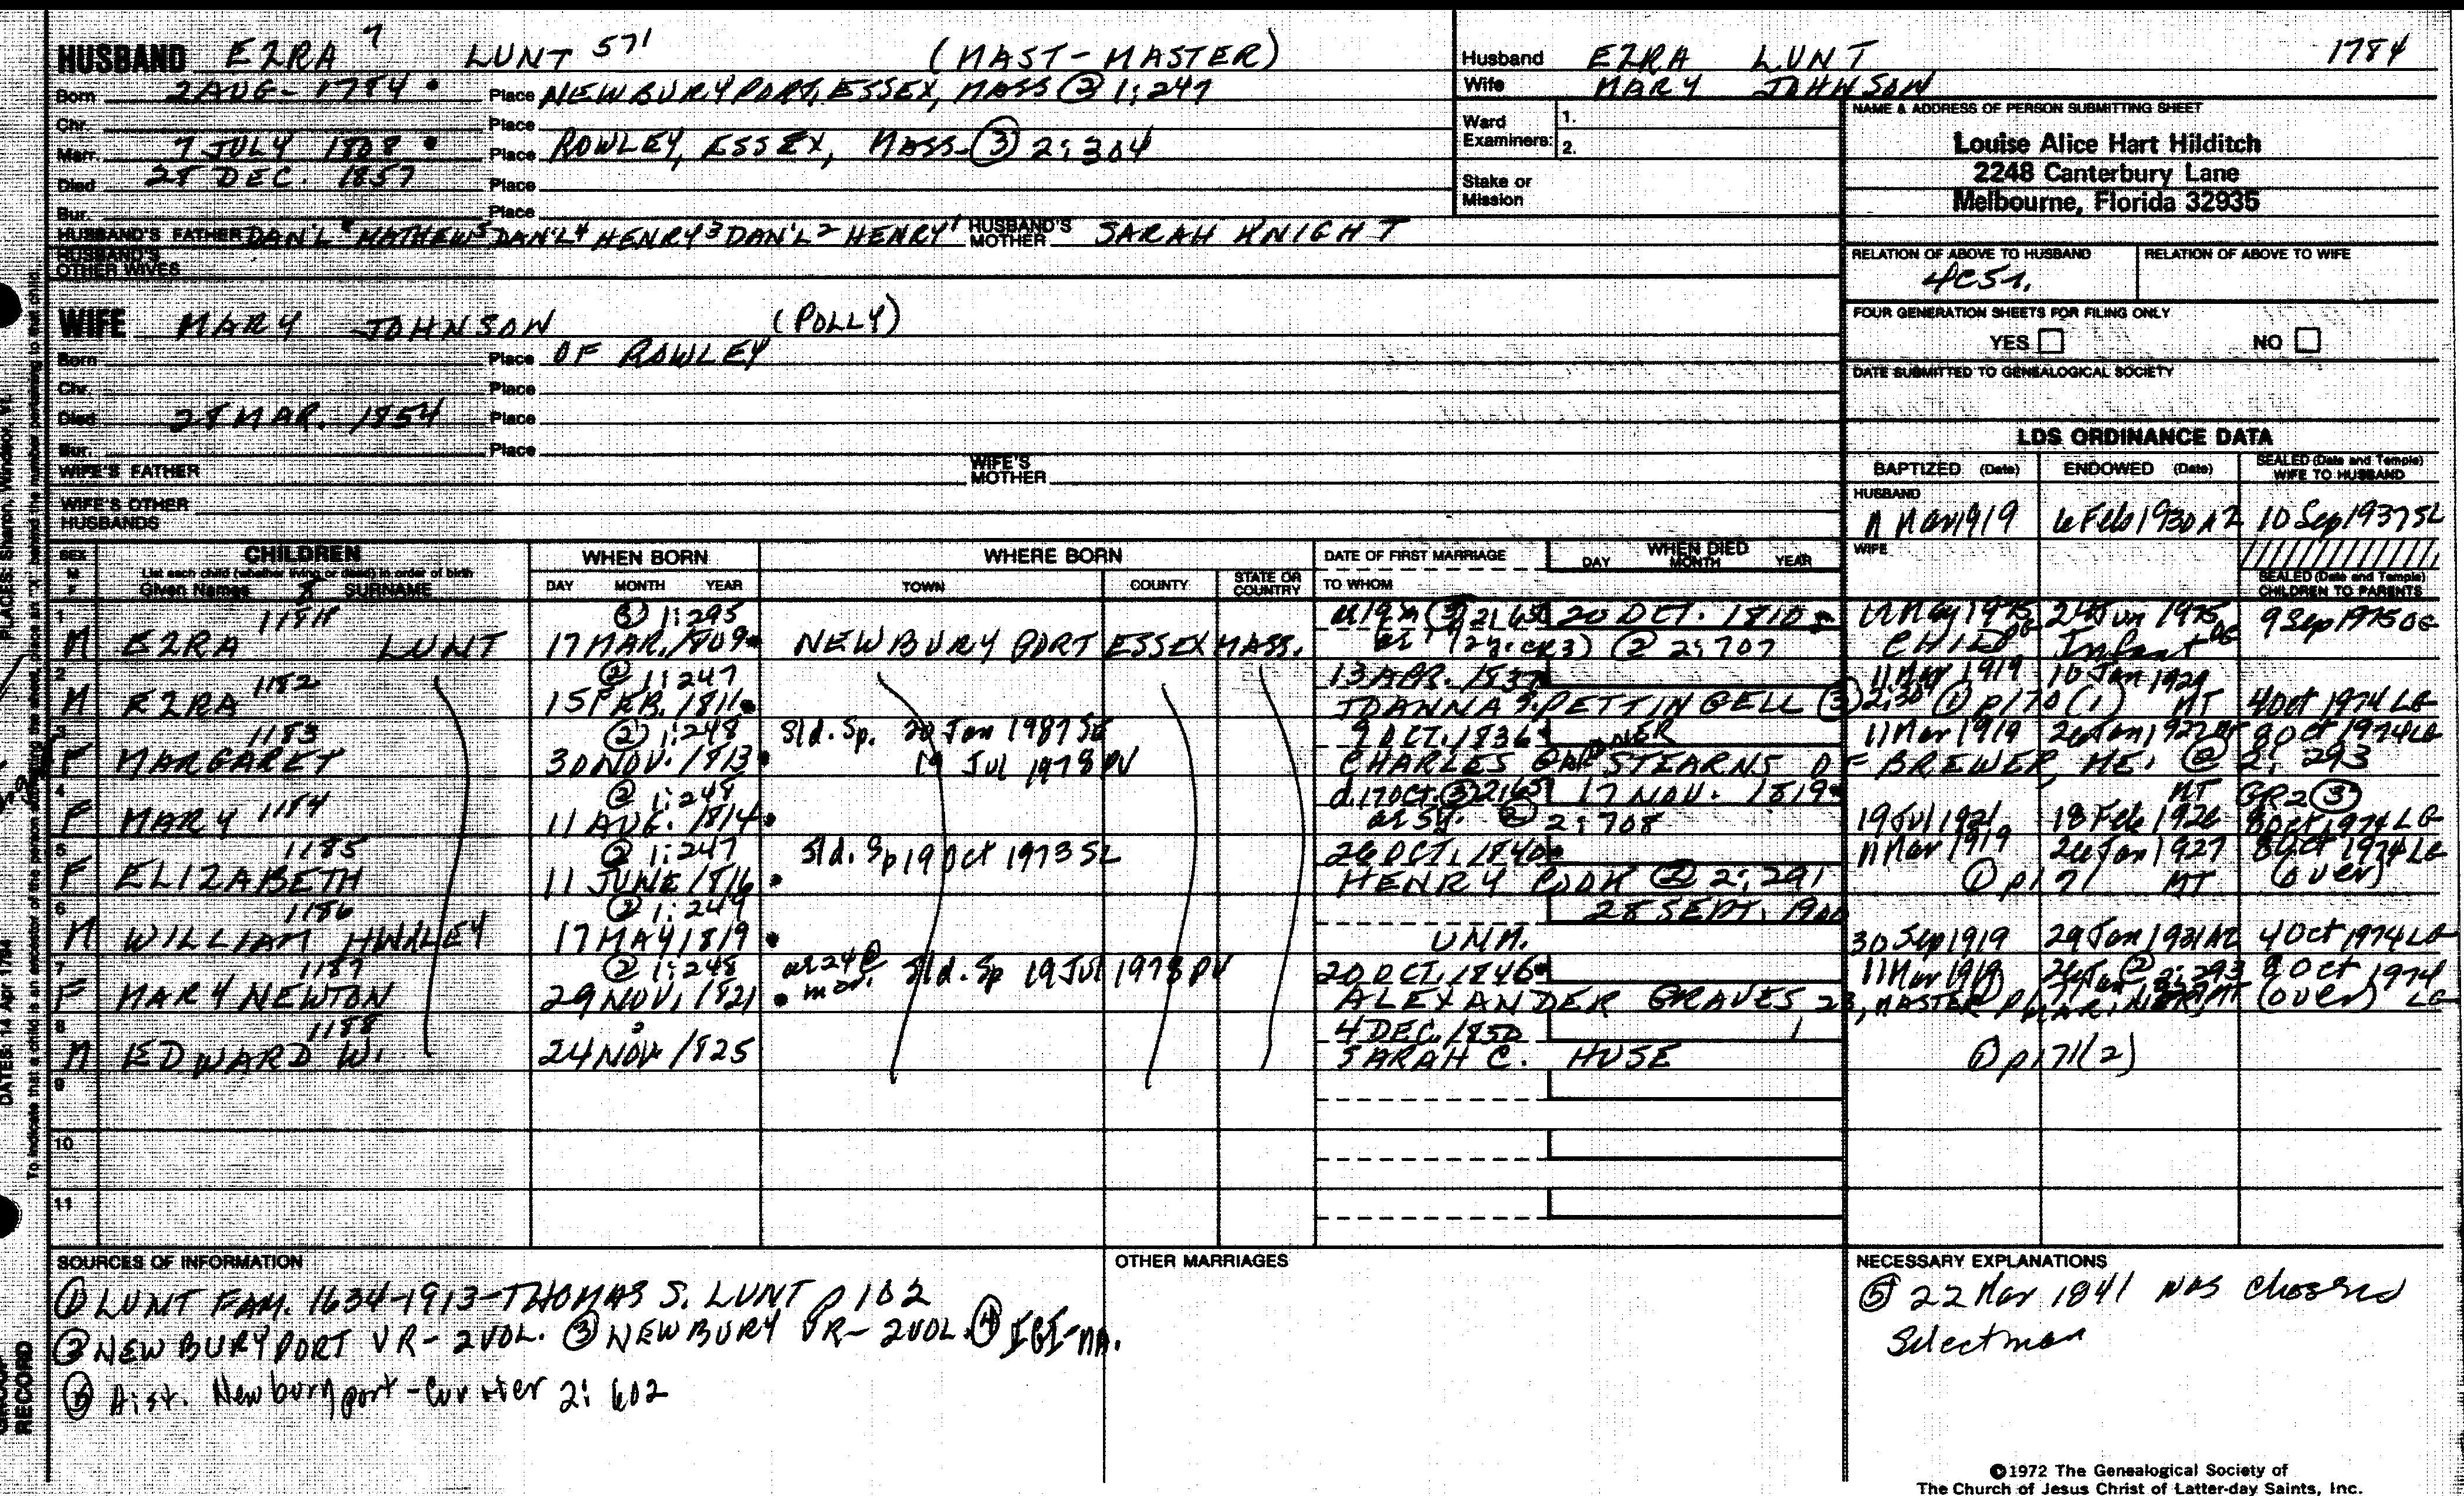 HUSBAND EZRA 7 LUNT 571 (MAST-MASTER)
Born 2 AUG- 1784 Place NEWBURYPORT, ESSEX, MASS ② 1:247
Chr. Place
Marr. 7 JULY 1808 Place ROWLEY, ESSEX, MASS- ③ 2:304
Died 28 DEC. 1857 Place
Bur. Place
HUSBAND'S FATHER DAN'L MATHEW5 DAN'L4 HENRY3 DAN'L2 HENRY1 HUSBAND'S MOTHER SARAH KNIGHT
HUSBAND'S OTHER WIVES
WIFE MARY JOHNSON (POLLY)
Born Place OF ROWLEY
Chr. Place
Died 28 MAR. 1854 Place
Bur. Place
WIFE'S FATHER WIFE'S MOTHER
WIFE'S OTHER HUSBANDS
Husband EZRA LUNT 1784
Wife MARY JOHNSON
Ward Examiners: 1.
2.
Stake or Mission
NAME & ADDRESS OF PERSON SUBMITTING SHEET
Louise Alice Hart Hilditch
2248 Canterbury Lane
Melbourne, Florida 32935
RELATION OF ABOVE TO HUSBAND RELATION OF ABOVE TO WIFE
4C5r.
FOUR GENERATION SHEETS FOR FILING ONLY
YES NO
DATE SUBMITTED TO GENEALOGICAL SOCIETY
LDS ORDINANCE DATA
BAPTIZED (Date) ENDOWED (Date) SEALED (Date and Temple) WIFE TO HUSBAND
HUSBAND
11 Mar 1919 6 Feb 1930 AZ 10 Sep 1937 SL
WIFE
SEALED (Date and Temple) CHILDREN TO PARENTS
SEX M F CHILDREN WHEN BORN WHERE BORN DATE OF FIRST MARRIAGE WHEN DIED
List each child (whether living or dead) in order of birth
Given Names 8 SURNAME DAY MONTH YEAR TOWN COUNTY STATE OR COUNTRY TO WHOM DAY MONTH YEAR
1 1181 ③ 1:295 20 OCT. 1810 24 Jun 1975 9 Sep 1975 OG
M EZRA LUNT 17 MAR. 1809 NEWBURY PORT ESSEX MASS. ② 2:707 CHILD Infant
2 1182 ② 1:247 13 APR. 1837 11 Mar 1919 10 Jan 1929
M EZRA 15 FEB. 1811 JOANNA S. PETTINGELL ③ 2:304 ① p170 (1) MT 4 Oct 1974 LG
3 1183 ② 1:248 Sld. Sp. 20 Jan 1987 9 OCT. 1836 11 Mar 1919
F MARGARET 30 NOV. 1813 19 Jul 1978 PV CHARLES STEARNS OF BREWER, ME. ② 2:293
4 1184 ② 1:248 d. 17 OCT. ③ 2:651 17 NOV. 1819 MT GR2 ③
F MARY 11 AUG. 1814 ae 5y. ② 2:708 19 Jul 1921 18 Feb 1926 8 Oct 1974 LG
5 1185 ② 1:247 Sld. Sp 19 Oct 1973 SL 26 OCT. 1840 11 Mar 1919 26 Jan 1927 8 Oct 1974 LG
F ELIZABETH 11 JUNE 1816 HENRY COOK ② 2:291 ① p171 MT (over)
6 1186 ② 1:249 28 SEPT. 1900
M WILLIAM HWILEY 17 MAY 1819 UNM. 30 Sep 1919 29 Jan 1931 AZ 4 Oct 1974 LG
7 1187 ② 1:248 ae 24 @ mar. Sld. Sp 19 Jul 1978 PV 20 OCT. 1846 11 Mar 1919 ② 2:293 8 Oct 1974
F MARY NEWTON 29 NOV. 1821 ALEXANDER GRAVES 23, MASTER MARINER, MT (over) LG
8 1188 4 DEC. 1850
M EDWARD W. 24 NOV. 1825 SARAH C. HUSE ① p171(2)
9
10
11
SOURCES OF INFORMATION
① LUNT FAM. 1634-1913-THOMAS S. LUNT p 102
② NEWBURYPORT VR- 2 VOL. ③ NEWBURY VR- 2 VOL. ④ IGI-MA.
⑤ Hist. Newburyport-Currier 2:602
OTHER MARRIAGES
NECESSARY EXPLANATIONS
⑤ 22 Mar 1841 was
Selectman
©1972 The Genealogical Society of
The Church of Jesus Christ of Latter-day Saints, Inc.
PLACES: Sharon, Windsor, Vt.
DATES: 14 Apr 1794
GROUP RECORD